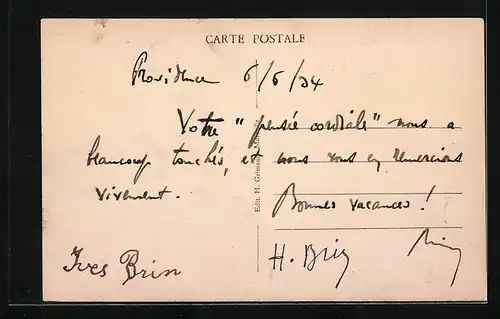 CARTE POSTALE
Providence 6/6/34
Votre "pensée cordiale" nous a
beaucoup touchés, et nous vous en remercions
vivement.
Bonnes vacances!
Yves Brin H. Brin
Edit. H. Grimaud, Marseille